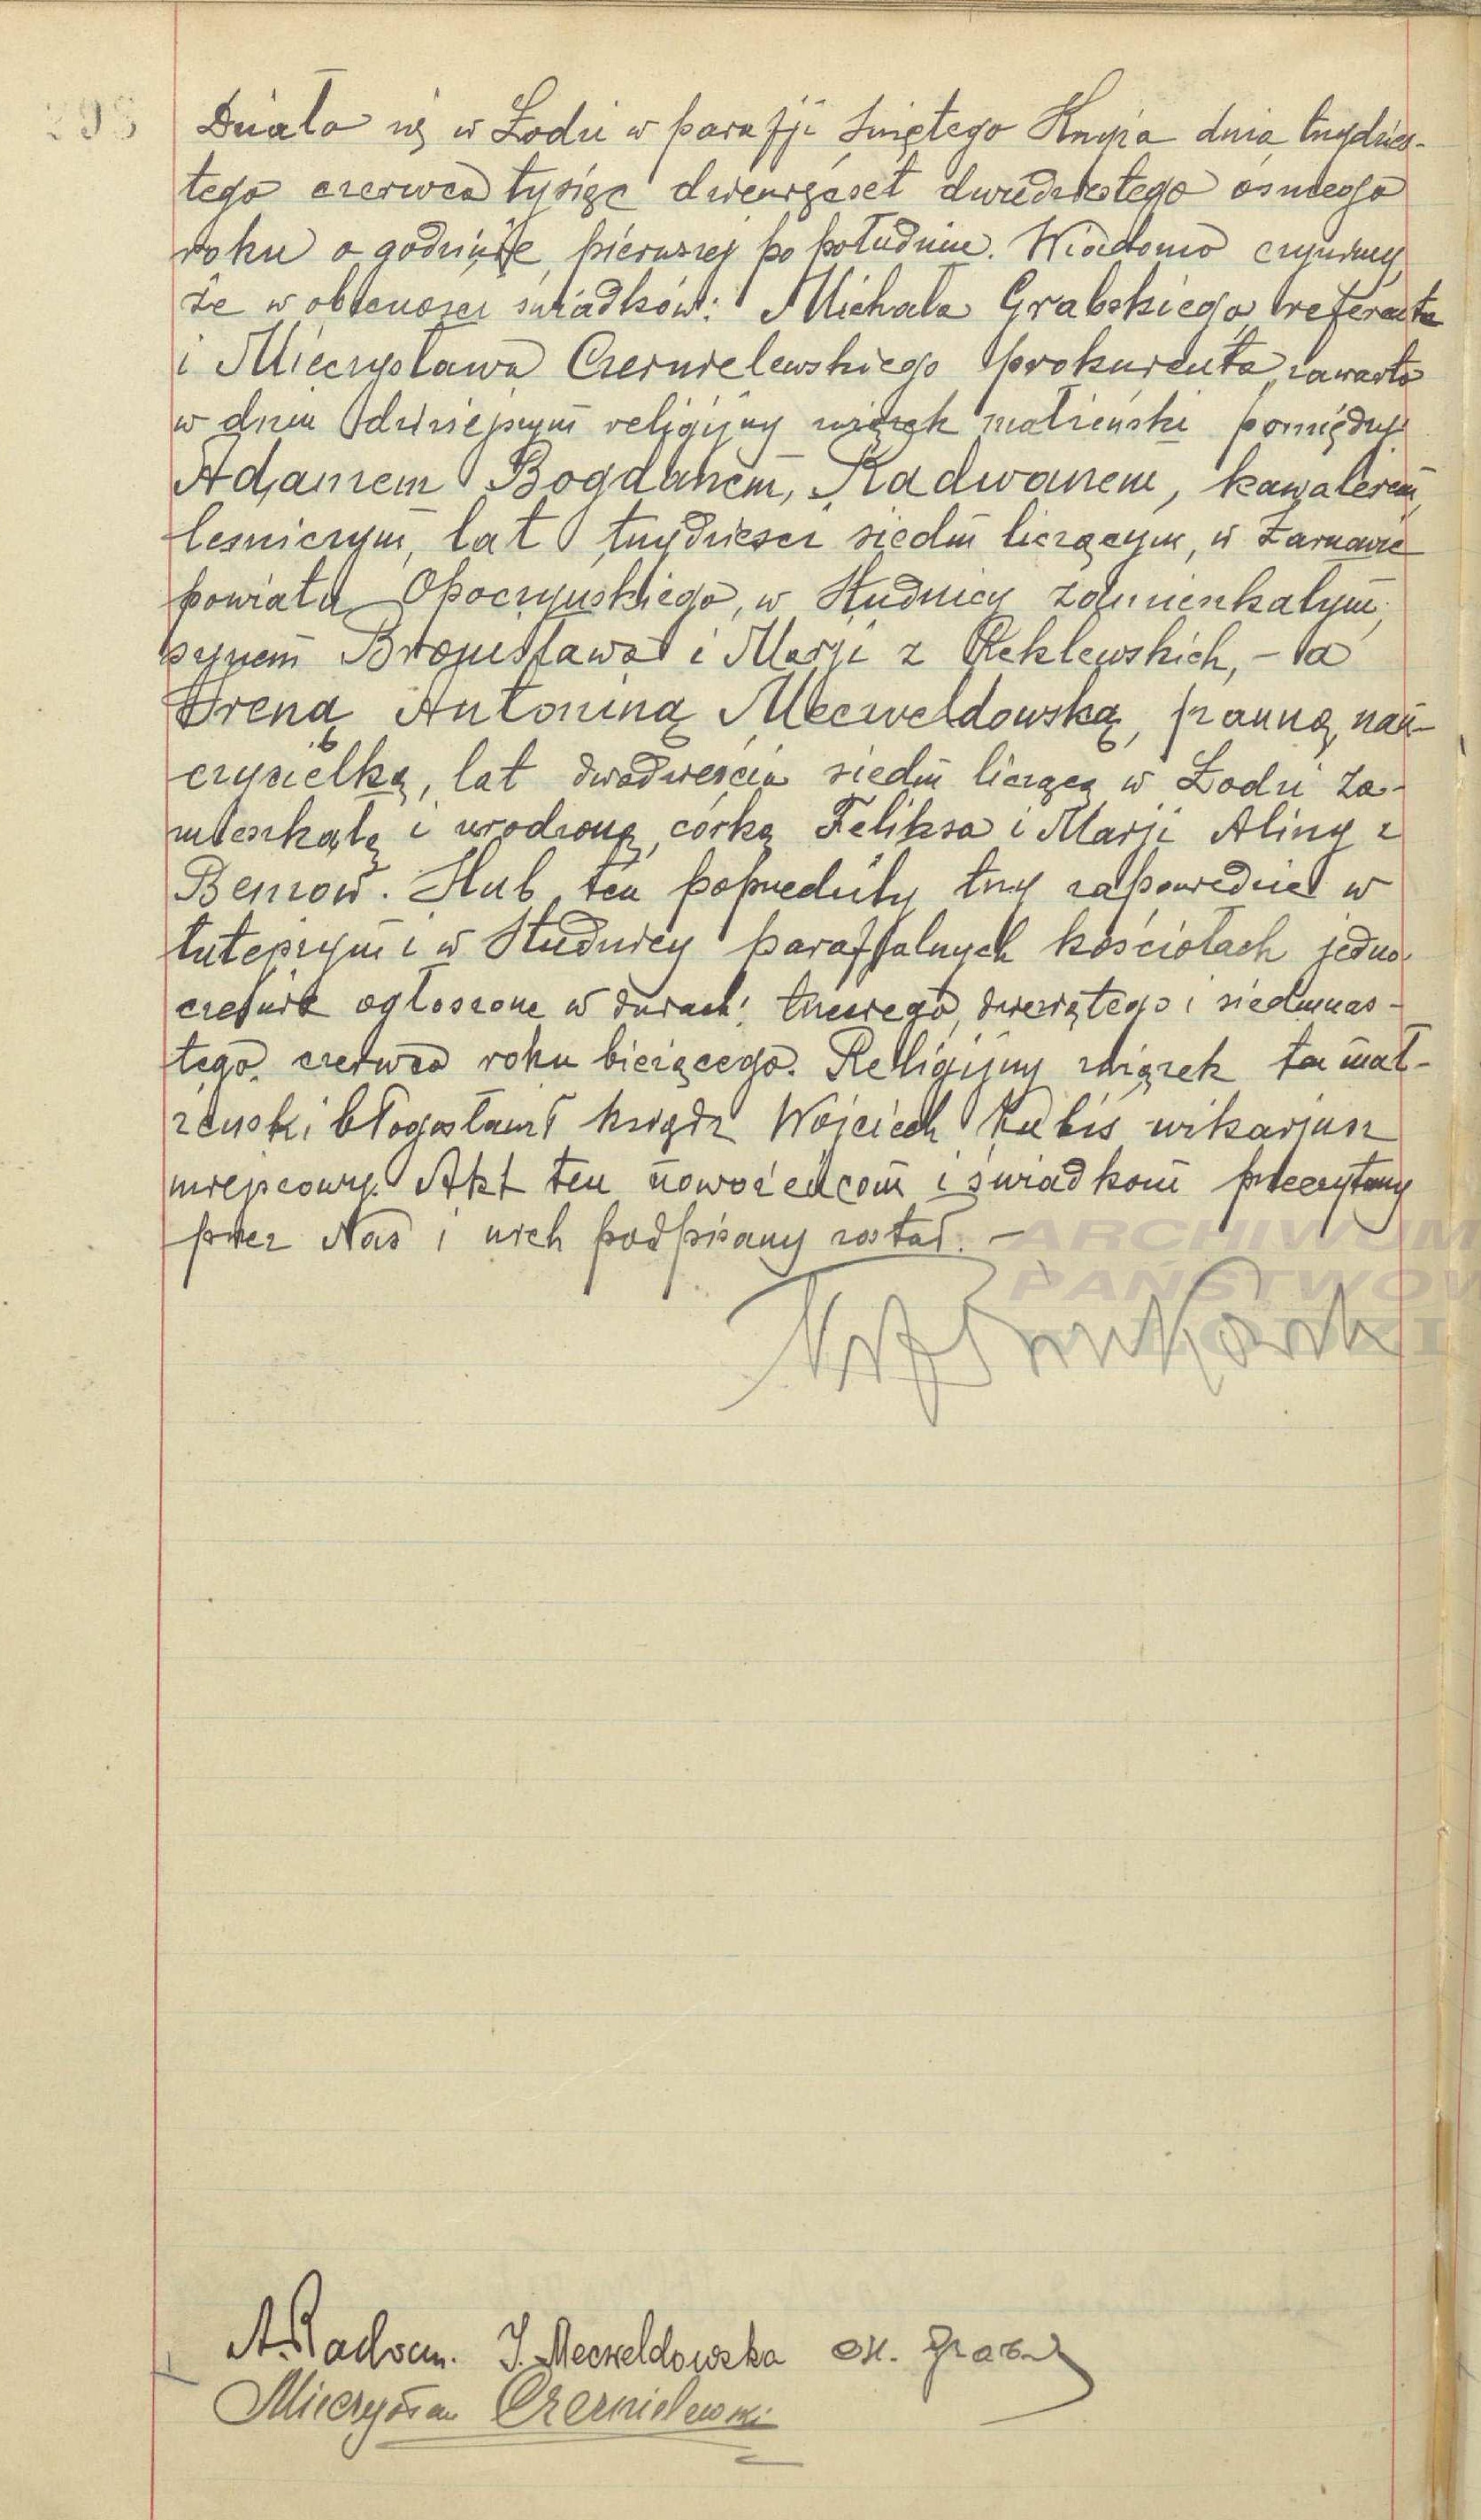 298
Działo się w Łodzi w parafji Świętego Krzyża dnia trzydzies-
tego czerwca tysiąc dziewięćset dwudziestego ósmego
roku o godzinie pierwszej po południu. Wiadomo czynimy,
że w obecności świadków: Michała Grabskiego referenta
i Mieczysława Czernielewskiego prokurenta, zawarto
w dniu dzisiejszym religijny związek małżeński pomiędzy
Adamem Bogdanem, Radwanem, kawalerem,
leśniczym, lat trzydzieści siedm liczącym, w Żarnowie
powiatu Opoczyńskiego, w Studnicy zamieszkałym,
synem Bronisława i Marji z Reklewskich, – a
Ireną Antoniną Meczweldowską, panną, nau-
czycielką, lat dwadzieścia siedm liczącą w Łodzi za-
mieszkałą i urodzoną, córką Feliksa i Marji Aliny z
Benzów. Ślub ten poprzedziły trzy zapowiedzie w
tutejszym i w Studnicy parafjalnych kościołach jedno
cześnie ogłoszone w dniach: trzeciego, dziesiątego i siedmnas-
tego czerwca roku bieżącego. Religijny związek ten mał-
żeński błogosławił ksiądz Wojciech Kubiś wikarjusz
miejscowy. Akt ten nowożeńcom i świadkom przeczytany
przez Nas i nich podpisany został. —
ARCHIWUM
PAŃSTWOW
W ŁODZI
A. Radwan. I. Meczweldowska
Mieczysław Czernielewski